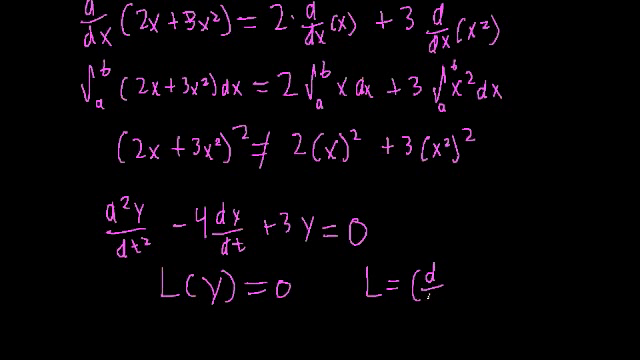 d/dx (2x + 3x²) = 2 · d/dx (x) + 3 d/dx (x²)
∫ₐᵇ (2x + 3x²) dx = 2 ∫ₐᵇ x dx + 3 ∫ₐᵇ x² dx
(2x + 3x²)² ≠ 2(x)² + 3(x²)²
d²y/dt² − 4 dy/dt + 3y = 0
L(y) = 0 L = (d/